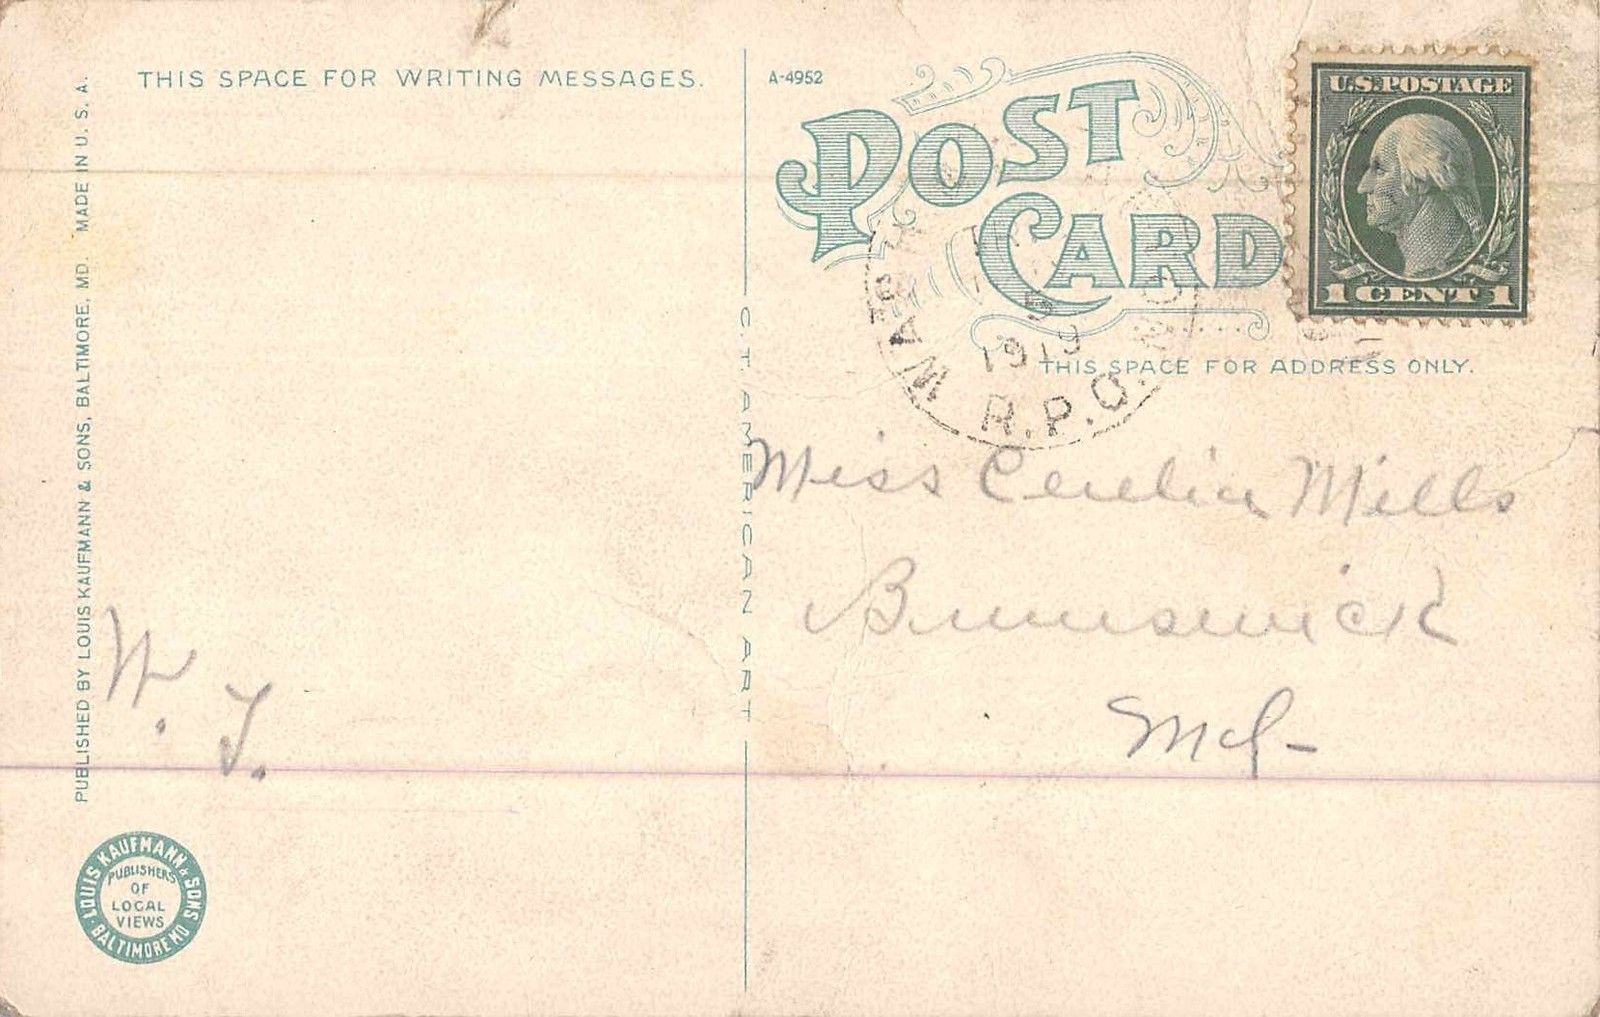 THIS SPACE FOR WRITING MESSAGES.
PUBLISHED BY LOUIS KAUFMANN & SONS, BALTIMORE, MD. MADE IN U. S. A.
W. T.
LOUIS KAUFMANN & SONS
BALTIMORE MD
PUBLISHERS
OF
LOCAL
VIEWS
C.T. AMERICAN ART
A-4952
POST
CARD
U.S. POSTAGE
1 CENT 1
THIS SPACE FOR ADDRESS ONLY.
WASH
5
1919
R.P.O.
Miss Mills
Brunswick
Md-